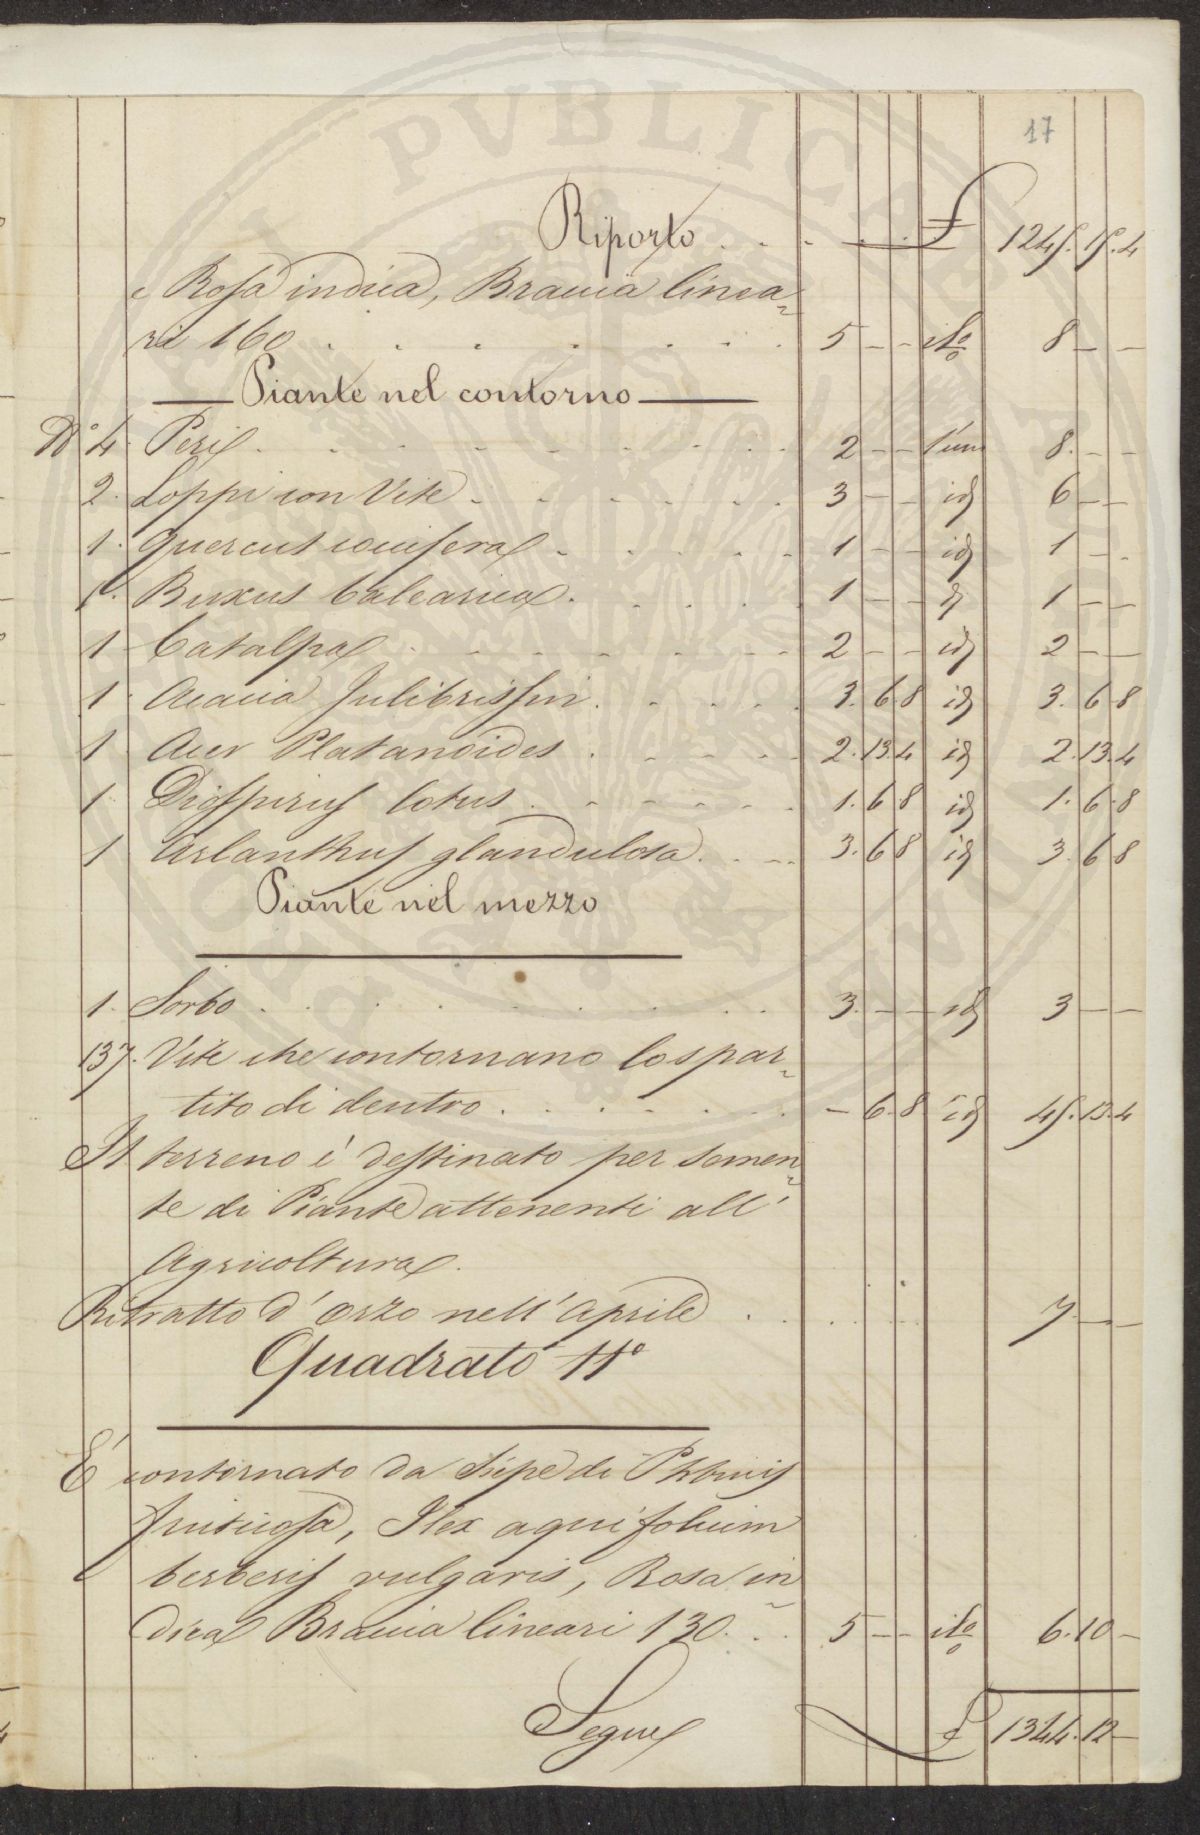 17
Riporto . . . . . £ 1245. 15. 4
e Rosa indica, Braccia linea=
ri 160 . . . . . . . 5 — — il % 8 — —
Piante nel contorno
N° 4. Peri . . . . . . . 2 — — l'uno 8. — —
2. Loppi con Vite . . . . . . 3 — — id 6 — —
1. Quercus coccifera . . . . . 1 — — id 1 — —
1. Buxus balearica . . . . . 1 — — id 1 — —
1 Catalpa . . . . . . . 2 — — id 2 — —
1. Acacia Julibrissin . . . . . 3. 6 8 id 3. 6 8
1 Acer Platanoides . . . . . 2. 13. 4 id 2. 13. 4
1 Diospirus lotus . . . . . . 1. 6 8 id 1. 6. 8
1 Arlanthus glandulosa . . . 3. 6 8 id 3. 6 8
Piante nel mezzo
1. Sorbo . . . . . . . . 3. — — id 3 — —
137. Vite che contornano lo spar=
tito di dentro . . . . . . . — 6. 8 id 45. 13. 4
Il terreno è destinato per semen=
te di Piante attenenti all'
Agricoltura.
Ritratto d'orzo nell'aprile . . . . . 7 — —
Quadrato 11°
É contornato da Siepe di
fruticosa, Ilex aquifolium
berberis vulgaris, Rosa in=
dica Braccia lineari 130. . . 5 — — il % 6. 10 —
Segue £ 1344. 12 —
PUBLICAE